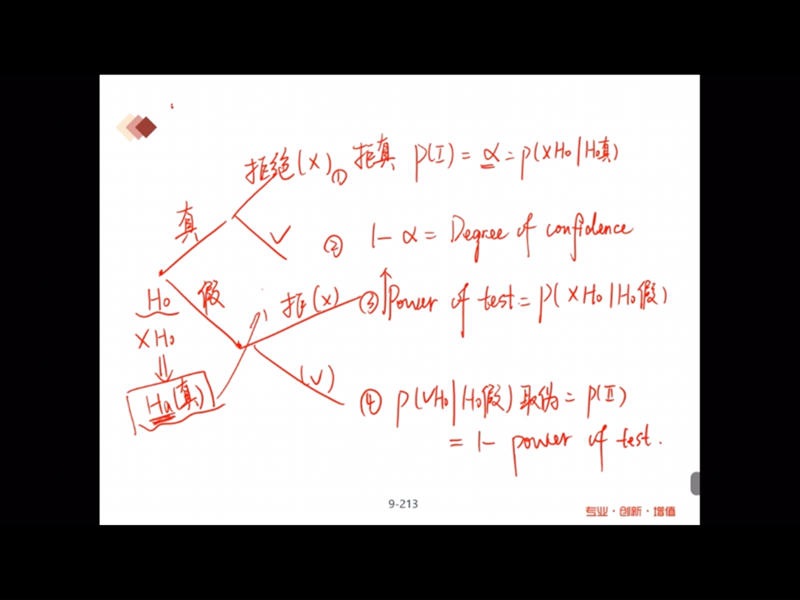 拒绝(X) ① 拒真 P(I) = α = P(XH0|H0真)
真
✓ ② 1-α = Degree of confidence
H0 假 拒(X) ↑ ③ Power of test = P(XH0|H0假)
XH0
⇓
Ha(真)
(✓) ④ P(✓H0|H0假) 取伪 = P(II)
= 1- power of test.
9-213
专业·创新·增值